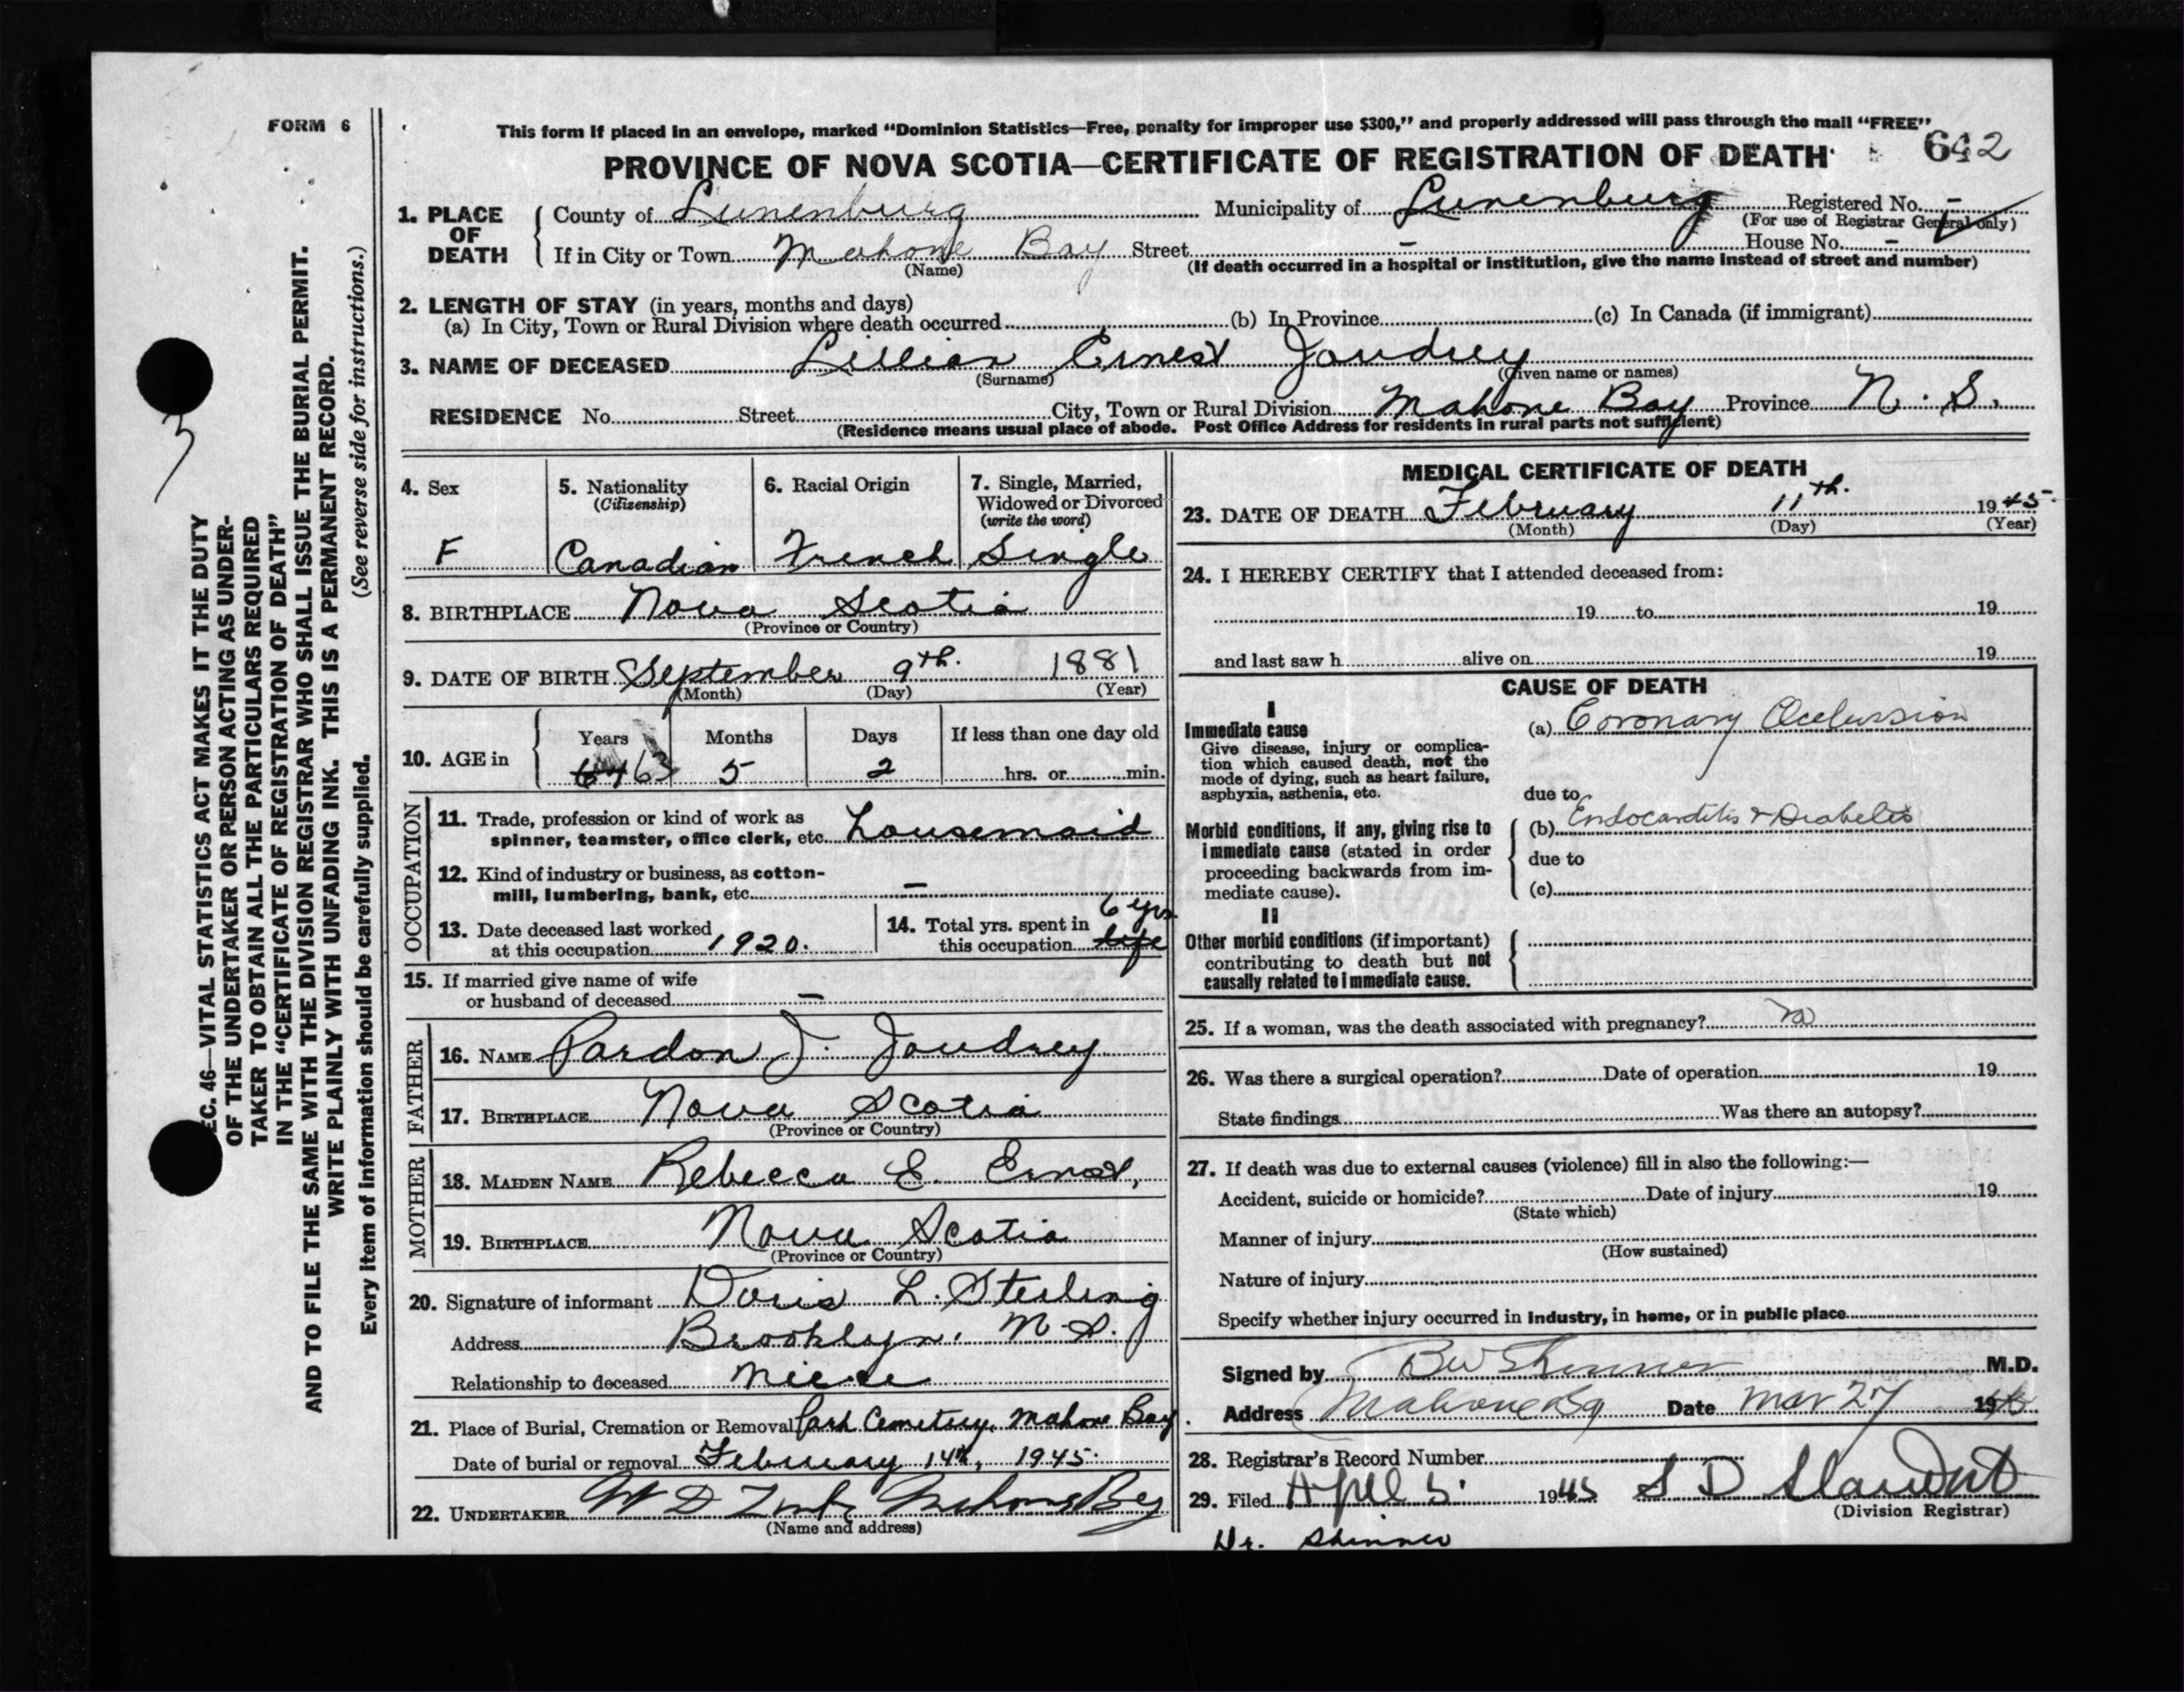 FORM 6
This form if placed in an envelope, marked “Dominion Statistics—Free, penalty for improper use $300,” and properly addressed will pass through the mail “FREE”
PROVINCE OF NOVA SCOTIA—CERTIFICATE OF REGISTRATION OF DEATH
642
1. PLACE OF DEATH
County of Lunenburg Municipality of Lunenburg Registered No. -
(For use of Registrar General only)
If in City or Town Mahone Bay Street - House No. -
(Name) (If death occurred in a hospital or institution, give the name instead of street and number)
2. LENGTH OF STAY (in years, months and days)
(a) In City, Town or Rural Division where death occurred (b) In Province (c) In Canada (if immigrant)
3. NAME OF DECEASED Lillian Ernest Joudrey
(Surname) (Given name or names)
RESIDENCE No. Street City, Town or Rural Division Mahone Bay Province N. S.
(Residence means usual place of abode. Post Office Address for residents in rural parts not sufficient)
4. Sex
F
5. Nationality
(Citizenship)
Canadian
6. Racial Origin
French
7. Single, Married,
Widowed or Divorced
(write the word)
Single
8. BIRTHPLACE Nova Scotia
(Province or Country)
9. DATE OF BIRTH September 9th. 1881
(Month) (Day) (Year)
10. AGE in
Years Months Days If less than one day old
63 5 2 hrs. or min.
OCCUPATION
11. Trade, profession or kind of work as
spinner, teamster, office clerk, etc. housemaid
12. Kind of industry or business, as cotton-
mill, lumbering, bank, etc. -
13. Date deceased last worked
at this occupation 1920.
14. Total yrs. spent in 6 yrs.
this occupation life
15. If married give name of wife
or husband of deceased -
FATHER
16. NAME Pardon J. Joudrey
17. BIRTHPLACE Nova Scotia
(Province or Country)
MOTHER
18. MAIDEN NAME Rebecca E. Ernst,
19. BIRTHPLACE Nova Scotia
(Province or Country)
20. Signature of informant Doris L. Sterling
Address Brooklyn, N.S.
Relationship to deceased Niece
21. Place of Burial, Cremation or Removal Park Cemetery, Mahone Bay
Date of burial or removal February 14th, 1945.
22. UNDERTAKER Mahone Bay
(Name and address)
MEDICAL CERTIFICATE OF DEATH
23. DATE OF DEATH February 11th. 1945
(Month) (Day) (Year)
24. I HEREBY CERTIFY that I attended deceased from:
19 to 19
and last saw h alive on 19
CAUSE OF DEATH
I
Immediate cause
Give disease, injury or complica-
tion which caused death, not the
mode of dying, such as heart failure,
asphyxia, asthenia, etc.
(a) Coronary Occlussion
due to
Morbid conditions, if any, giving rise to
immediate cause (stated in order
proceeding backwards from im-
mediate cause).
(b) Endocarditis & Diabetes
due to
(c)
II
Other morbid conditions (if important)
contributing to death but not
causally related to immediate cause.
25. If a woman, was the death associated with pregnancy? no
26. Was there a surgical operation? Date of operation 19
State findings Was there an autopsy?
27. If death was due to external causes (violence) fill in also the following:—
Accident, suicide or homicide? Date of injury 19
(State which)
Manner of injury
(How sustained)
Nature of injury
Specify whether injury occurred in industry, in home, or in public place
Signed by BW Skinner M.D.
Address Mahone Bay Date Mar 27 19
28. Registrar's Record Number
29. Filed April 5. 1945 S D
(Division Registrar)
Dr. Skinner
EC. 46—VITAL STATISTICS ACT MAKES IT THE DUTY
OF THE UNDERTAKER OR PERSON ACTING AS UNDER-
TAKER TO OBTAIN ALL THE PARTICULARS REQUIRED
IN THE “CERTIFICATE OF REGISTRATION OF DEATH”
AND TO FILE THE SAME WITH THE DIVISION REGISTRAR WHO SHALL ISSUE THE BURIAL PERMIT.
WRITE PLAINLY WITH UNFADING INK. THIS IS A PERMANENT RECORD.
Every item of information should be carefully supplied. (See reverse side for instructions.)
3